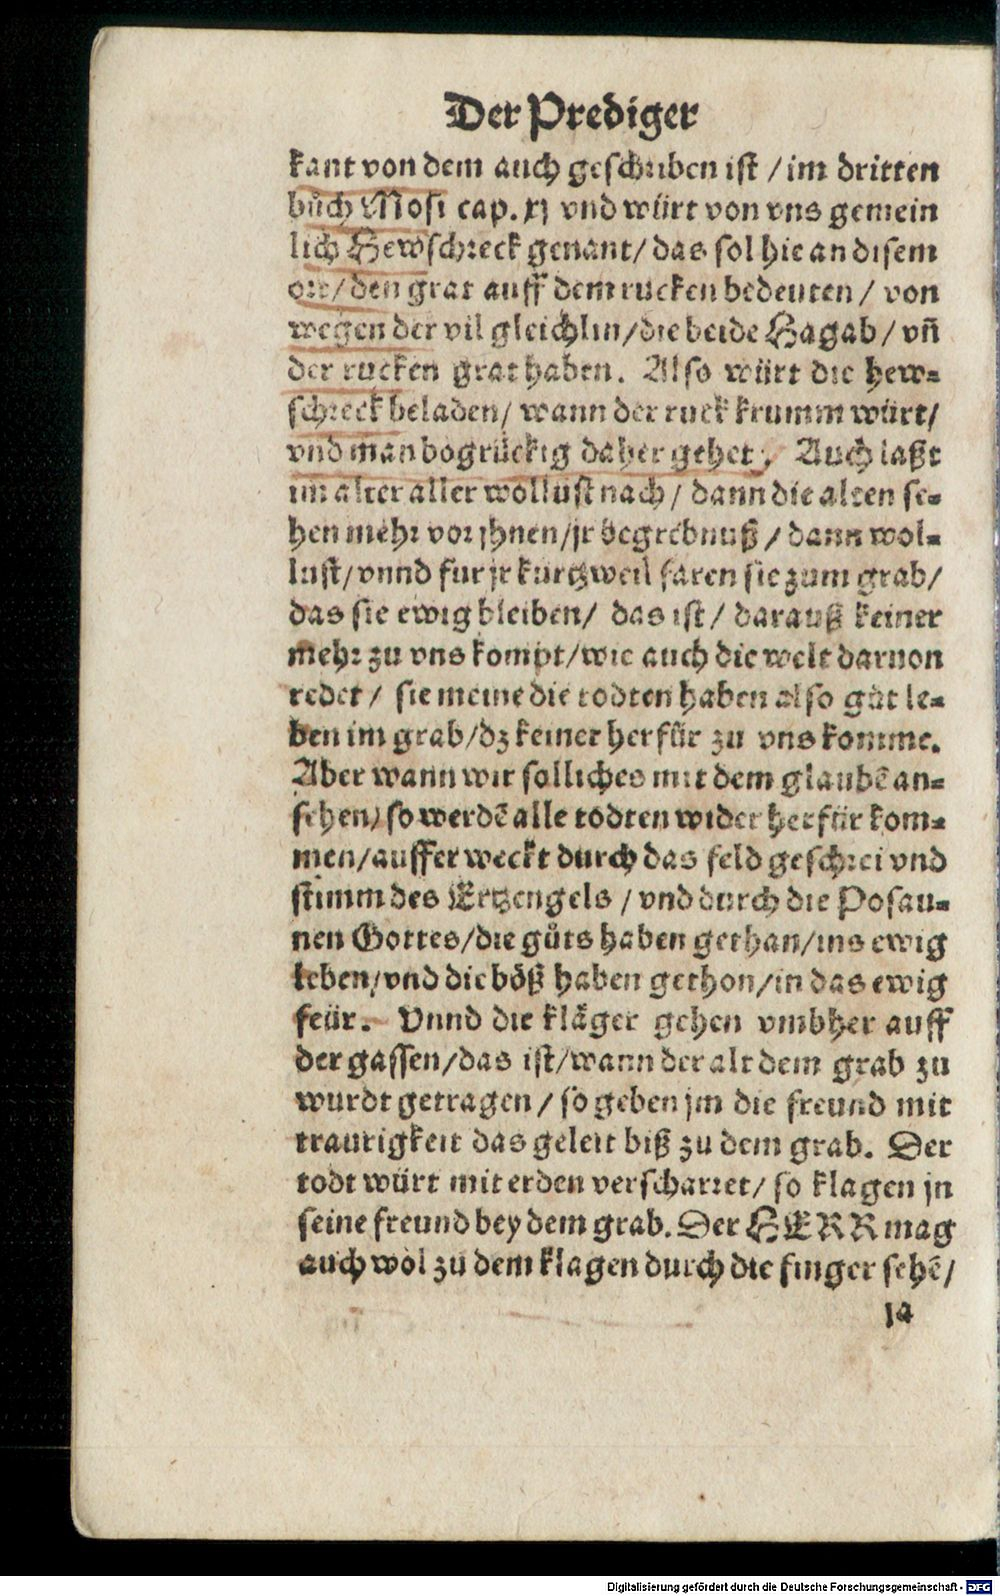 Der Prediger
kant von dem auch geschriben ist / im dritten
bůch Mosi cap. xj vnd würt von vns gemein
lich Hewschreck genant / das sol hie an disem
ort / den grat auff dem rucken bedeuten / von
wegen der vil gleichlin / die beide Hagab / vñ
der rucken grat haben. Also würt die hew=
schreck beladen / wann der ruck krumm würt /
vnd man bogrückig daher gehet. Auch laßt
im alter aller wollust nach / dann die alten se=
hen mehr vor jhnen / jr begrebnuß / dann wol=
lust / vnnd fur jr kurtzweil faren sie zum grab /
das sie ewig bleiben / das ist / darauß keiner
mehr zu vns kompt / wie auch die welt daruon
redet / sie meine die todten haben also gůt le=
ben im grab / dz keiner herfür zu vns komme.
Aber wann wir solliches mit dem glaubē an=
sehen / so werdē alle todten wider herfür kom=
men / aufferweckt durch das feldgeschrei vnd
stimm des Ertzengels / vnd durch die Posau=
nen Gottes / die gůts haben gethan / ins ewig
leben / vnd die böß haben gethon / in das ewig
feür. Vnnd die kläger gehen vmbher auff
der gassen / das ist / wann der alt dem grab zu
wurdt getragen / so geben jm die freund mit
traurigkeit das geleit biß zu dem grab. Der
todt würt mit erden verscharret / so klagen jn
seine freund bey dem grab. Der HERR mag
auch wol zu dem klagen durch die finger sehē /
ja
Digitalisierung gefördert durch die Deutsche Forschungsgemeinschaft - DFG